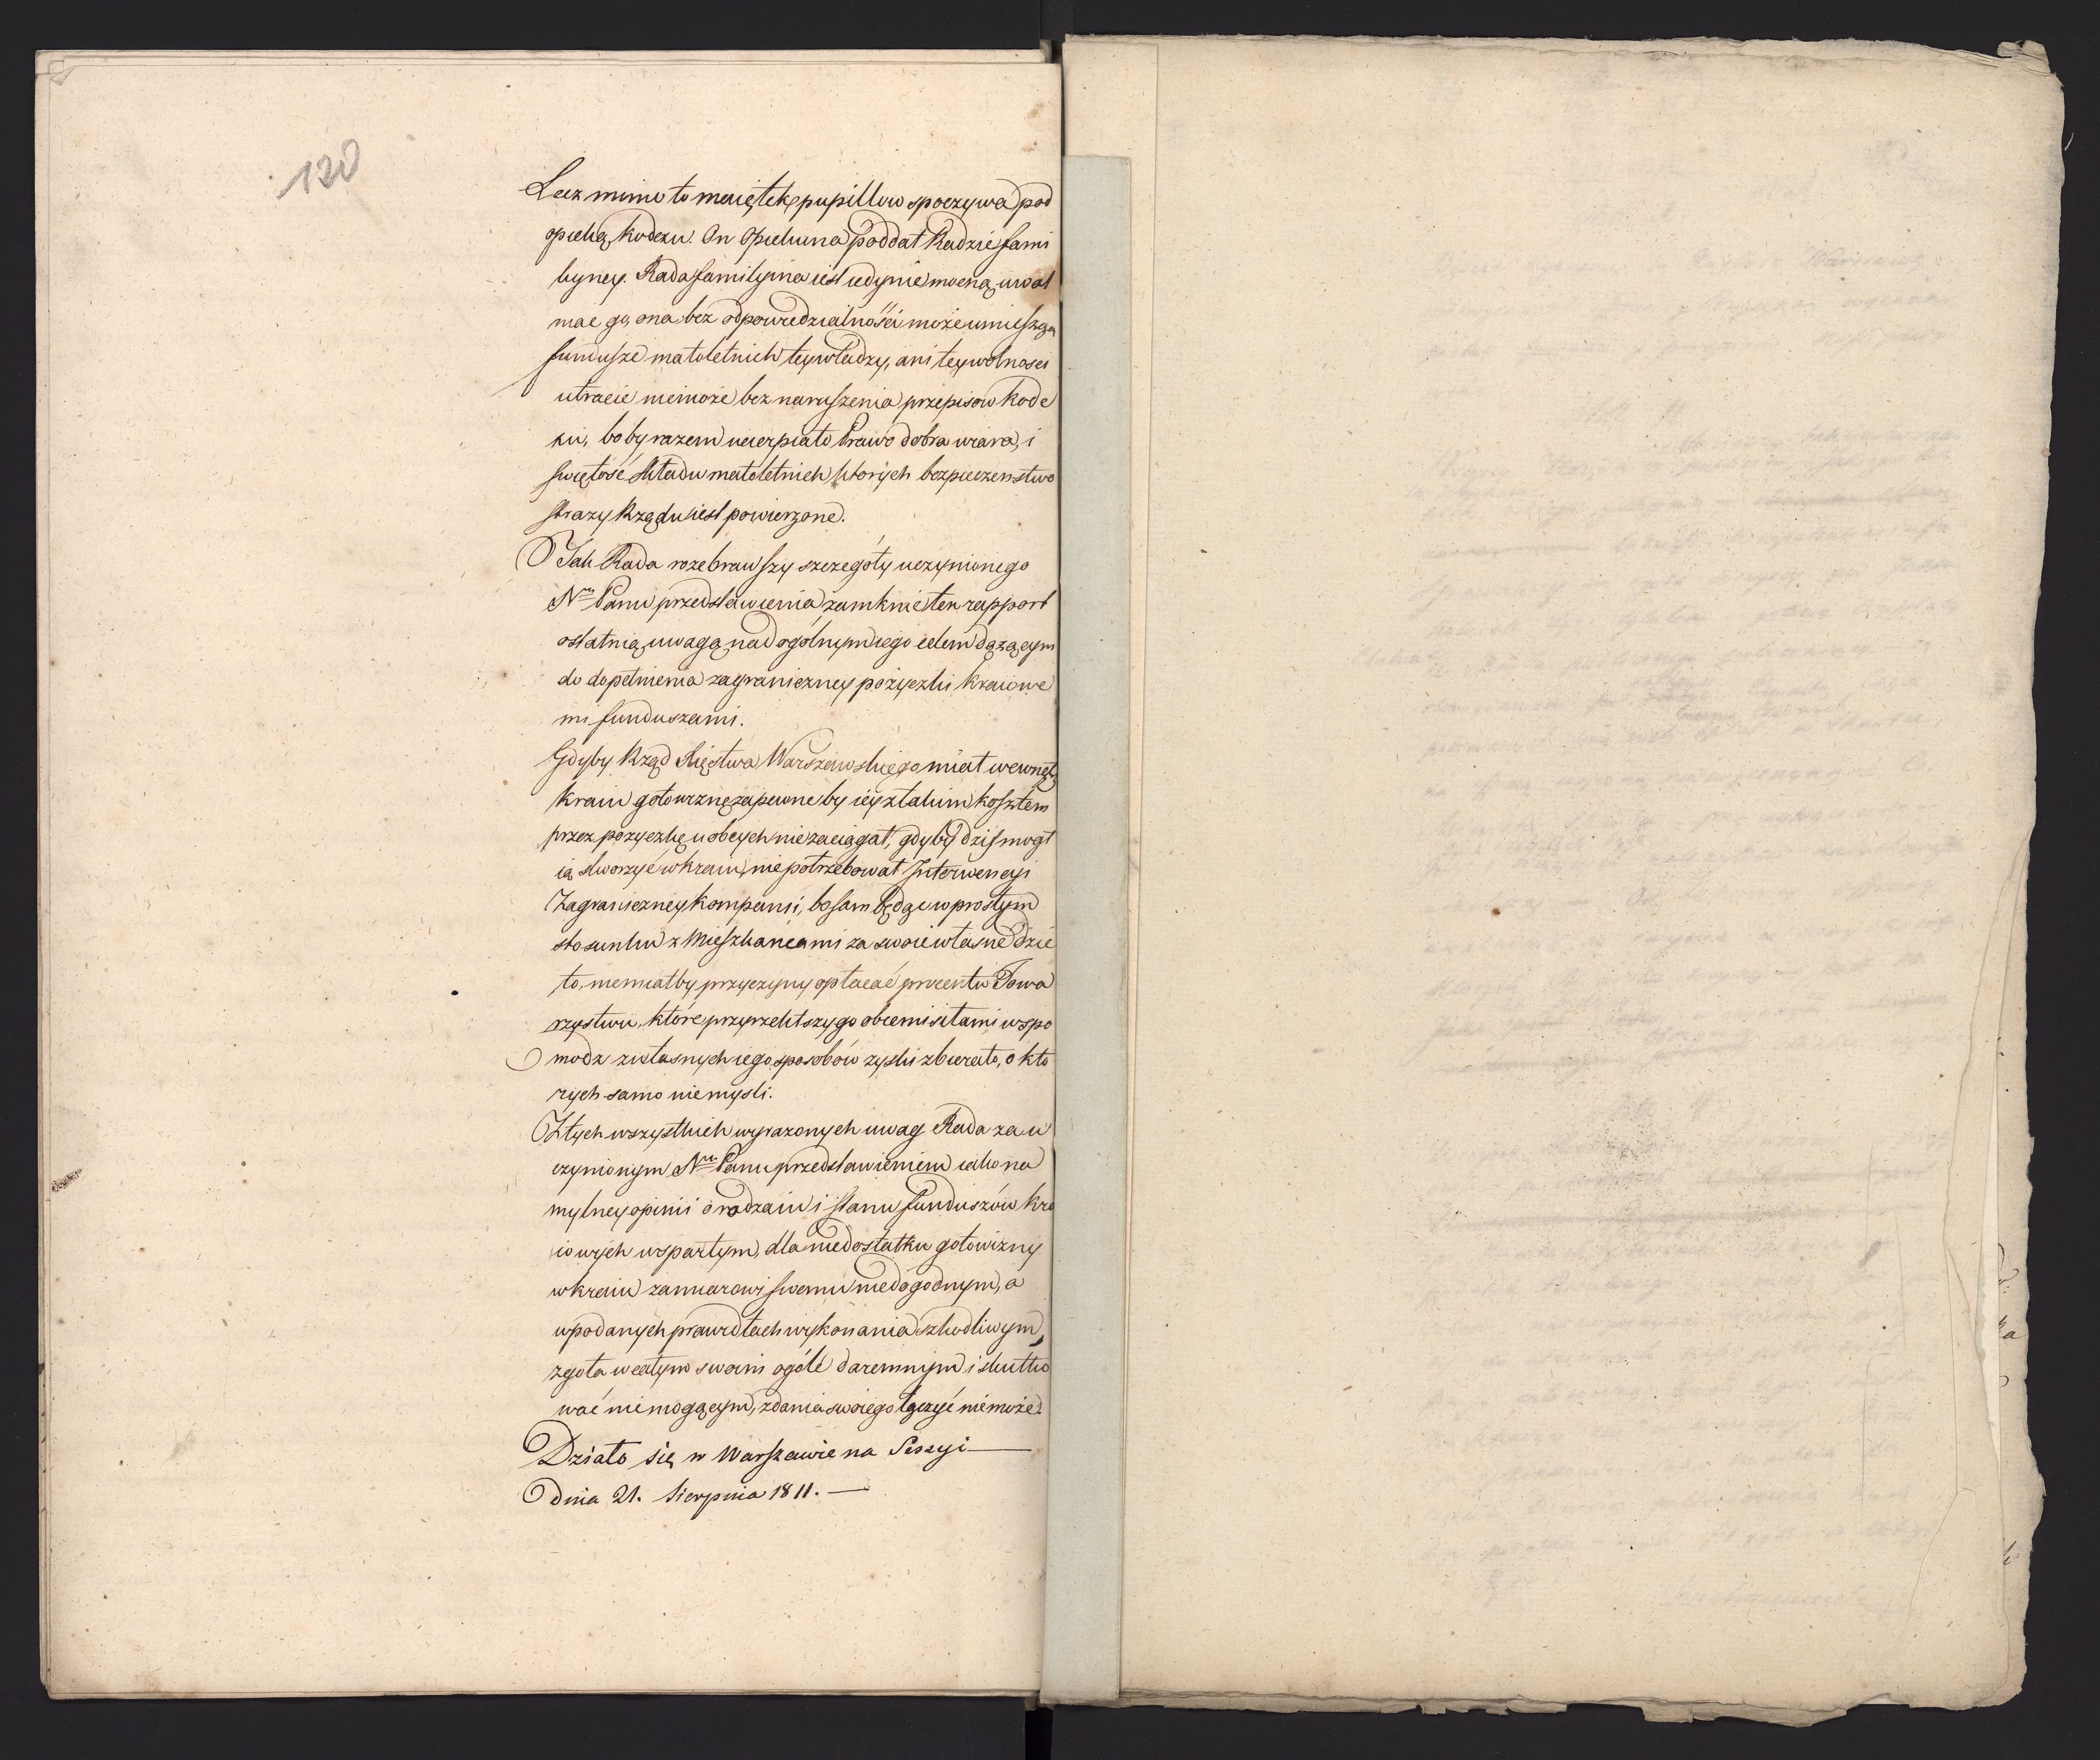 120
Lecz mimo to maiętek pupillow spoczywa pod
opieką kodexu. On Opiekuna poddał Radzie fami
liyney. Rada familyina iest iedynie mocną uwal
niać go, ona bez odpowiedzialności może umieszczać
fundusze małoletnich tey władzy, ani tey wolności
utracić niemoże bez naruszenia przepisow Kode
xu, bo by razem ucierpiało Prawo dobra wiara, i
swiętość składu małoletnich ktorych bezpieczenstwo
straży Rządu iest powierzone.
Tak Rada rozebrawszy szczegóły uczynionego
Nmu Panu przedstawienia zamknie ten rapport
ostatnią uwagą nad ogólnym iego celem dążącym
do dopełnienia zagraniczney pożyczki kraiowe
mi funduszami.
Gdyby Rząd Xięstwa Warszawskiego miał wewnątrz
kraiu gotowiznę zapewne by iey z takim kosztem
przez pożyczkę u obcych nie zaciągał, gdyby dziś mogł
ią stworzyć w kraiu, nie potrzebował Interwencyi
Zagraniczney kompanii, bo sam będąc w prostym
stosunku z Mieszkańcami za swoie własne dzie
ło, niemiałby przyczyny opłacać procentu Towa
rzystwu, które przyrzekłszy go obcemi siłami wspo
modz z własnych iego sposobów zyski zbierało, o kto
rych samo niemysli.
Z tych wszystkich wyrażonych uwag Rada za u
czynionym Nmu Panu przedstawieniem iako na
mylney opinii o rodzaiu i stanu funduszów kra
iowych wspartym, dla niedostatku gotowizny
w kraiu zamiarowi swemu niedogodnym, a
w podanych prawidłach wykonania szkodliwym,
zgoła w całym swoim ogóle daremnym i skutko
wać niemogącym, zdania swoiego łączyć niemoże.
Działo się w Warszawie na Sessyi
dnia 21. Sierpnia 1811.